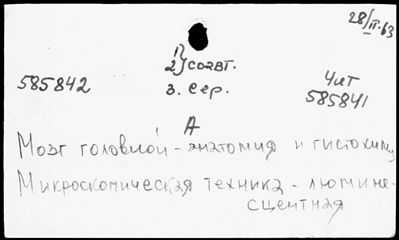 28/II.63
1)
2) соавт.
585842
3. Сер.
Чит
585841
А
Мозг головной - анатомия и гистохим
Микроскопическая техника - люмине-
сцентная